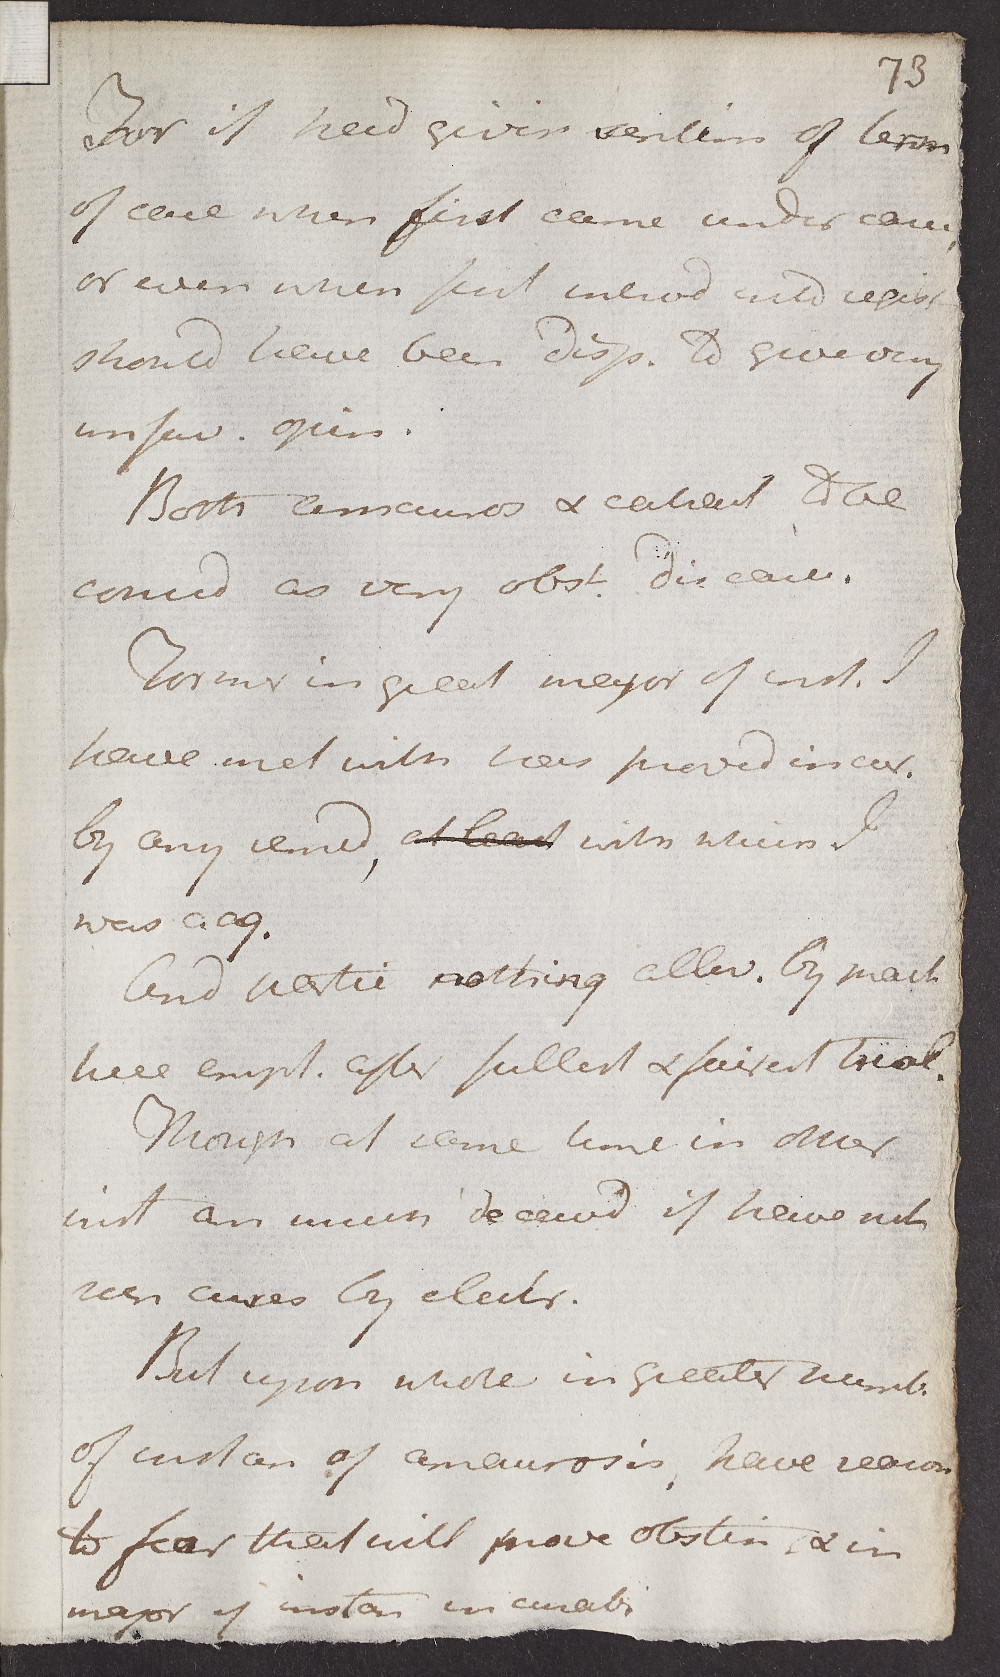 73
For if had given sentim of term
of case when first came under care,
or even when first introd into regist
should have been disp. to give very
unfav. opin.
Both amauros & catarat to be
consid as very obst. diseases.
Former in great major of inst. I
have met with has proved incur.
by any remed, at least with which I
was acq.
And partic nothing allev. by pract
here empl. after fullest & fairest trial.
Though at same time in other
inst am much deceivd if have not
seen cures by electr.
But upon whole in greater numb.
of instan of amaurosis, have reason
to fear that will prove obstin, & in
major of instan incurab